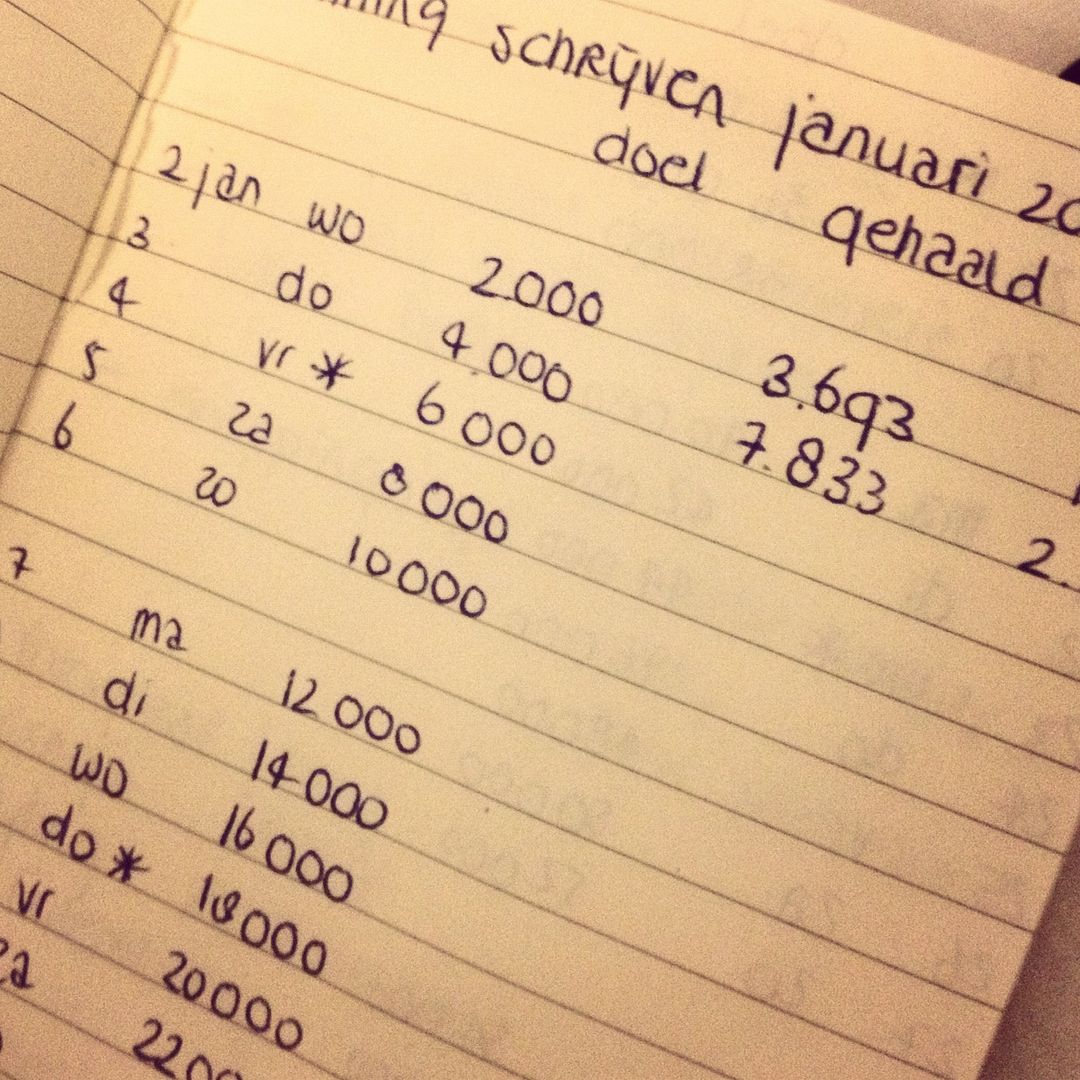 schrijven januari 20
doel gehaald
2 jan wo 2.000 3.693
3 do 4.000 7.833 2.
4 vr * 6 000
5 za 8 000
6 zo 10 000
7 ma 12 000
di 14 000
wo 16 000
do * 18 000
vr 20000
za 2200